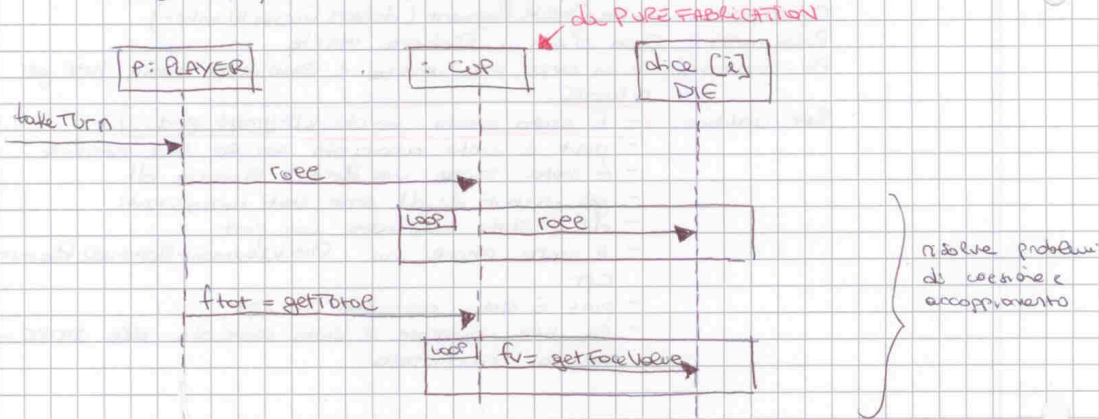 da PURE FABRICATION
P: PLAYER
: CUP
dice [i]
DIE
takeTurn
roll
LOOP
roll
ftot = getTotal
LOOP
fv = getFaceValue
risolve problemi
di coesione e
accoppiamento